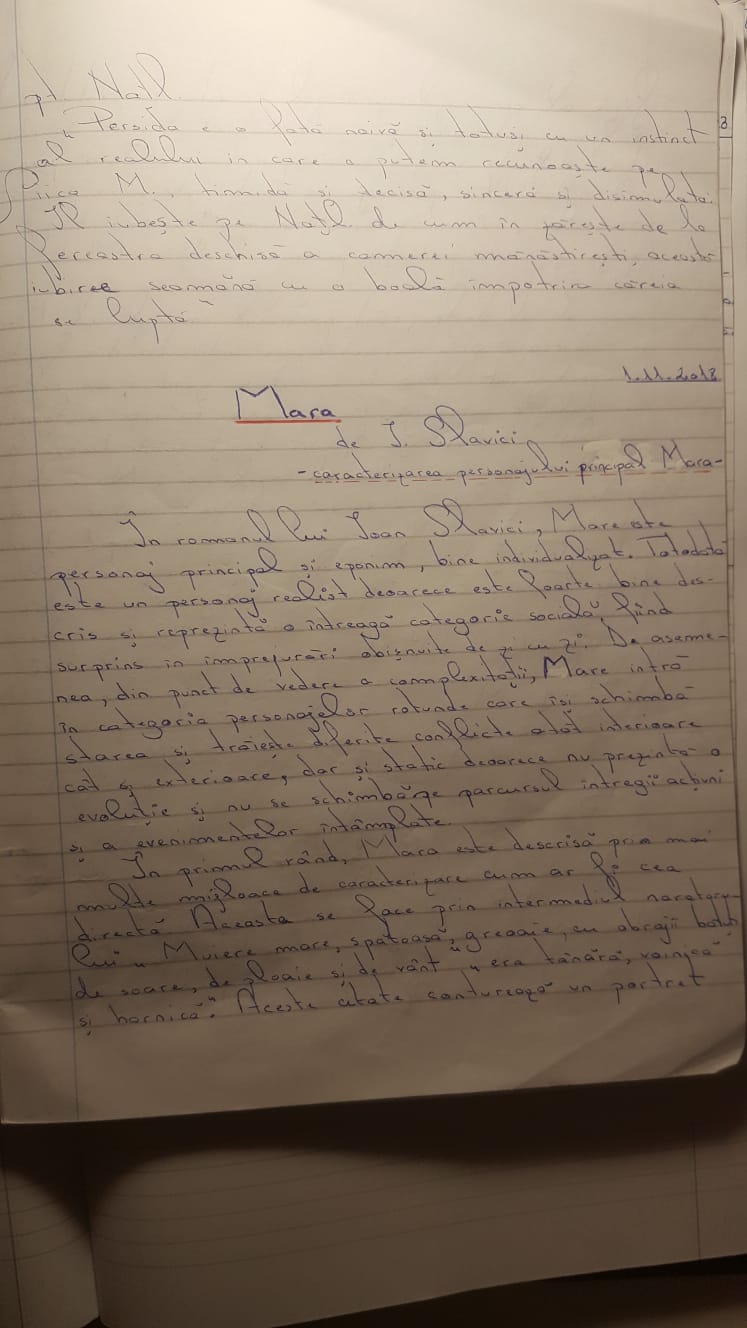 pt Natl.
"Persida e o fată naivă și totuși cu un instinct
al realului in care o putem recunoaște pe
fiica M., timidă și decisă, sinceră și disimulata.
Il iubește pe Natl. de cum în zărește de la
fereastra deschisă a camerei mănăstirești, aceasta
iubiree seamănă cu o boală impotriva căreia
se luptă"
1.11.2018
Mara
de I. Slavici
-caracterizarea personajului principal Mara-
În romanul lui Ioan Slavici, Mara este
personaj principal și eponim, bine individualizat. Totodată
este un personaj realist deoarece este foarte bine des-
cris și reprezintă o întreagă categorie socială, fiind
surprins in imprejurări obișnuite de zi cu zi. De aseme-
nea, din punct de vedere a complexității, Mara intră
în categoria personajelor rotunde care își schimbă
starea și trăiește diferite conflicte atât interioare
cât și exterioare, dar și static deoarece nu prezintă o
evoluție și nu se schimbă pe parcursul intregii acțiuni
și a evenimentelor întâmplate.
În primul rând, Mara este descrisă prin mai
multe mijloace de caracterizare cum ar fi cea
directă Aceasta se face prin intermediul naratoru-
lui „Muiere mare, spătoasă, greoaie, cu obrajii bătuți
de soare, de ploaie și de vânt", „era tânără, voinică
și harnică". Aceste citate conturează un portret